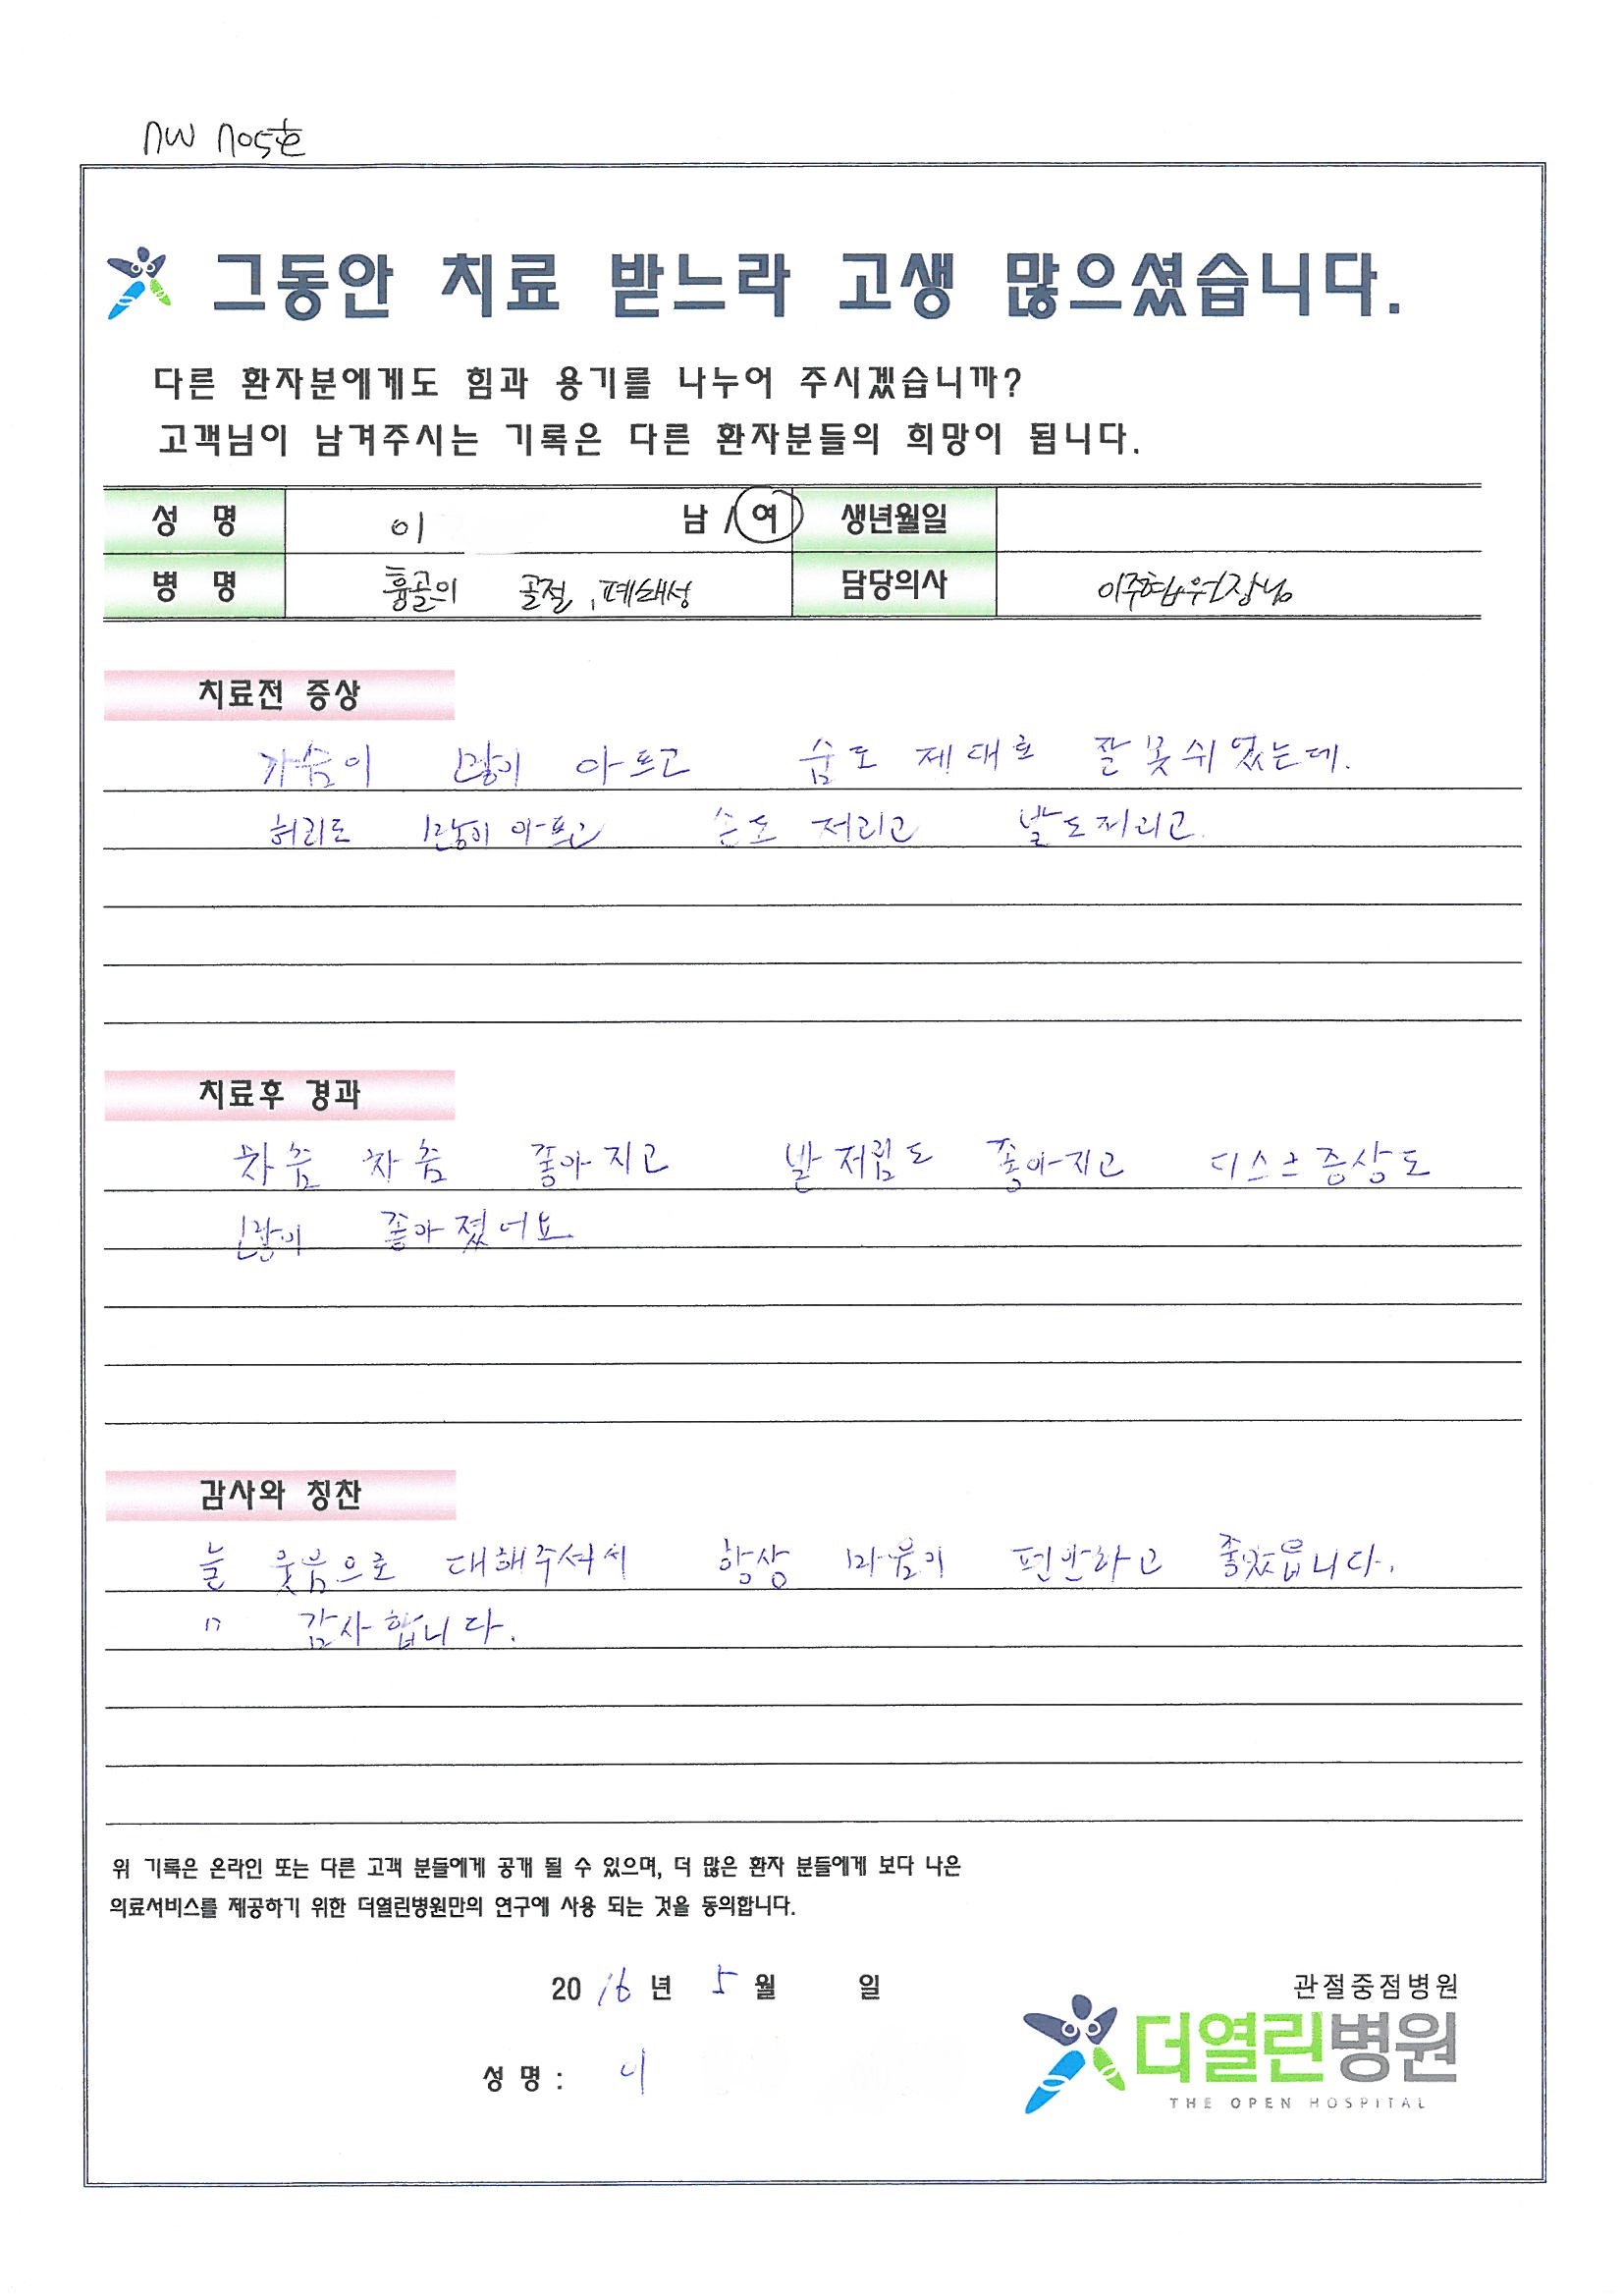 7W 705호
그동안 치료 받느라 고생 많으셨습니다.
다른 환자분에게도 힘과 용기를 나누어 주시겠습니까?
고객님이 남겨주시는 기록은 다른 환자분들의 희망이 됩니다.
성 명 이 남 / 여 생년월일
병 명 흉골의 골절, 폐쇄성 담당의사 이주협 원장님
치료전 증상
가슴이 많이 아프고 숨도 제대로 잘 못쉬었는데.
허리도 많이 아프고 손도 저리고 발도 저리고.
치료후 경과
차츰 차츰 좋아지고 발저림도 좋아지고 디스크증상도
많이 좋아졌어요
감사와 칭찬
늘 웃음으로 대해주셔서 항상 마음이 편안하고 좋았읍니다.
" 감사합니다.
위 기록은 온라인 또는 다른 고객 분들에게 공개 될 수 있으며, 더 많은 환자 분들에게 보다 나은
의료서비스를 제공하기 위한 더열린병원만의 연구에 사용 되는 것을 동의합니다.
2016년 5월 일
성 명 : 이
관절중점병원
더열린병원
THE OPEN HOSPITAL